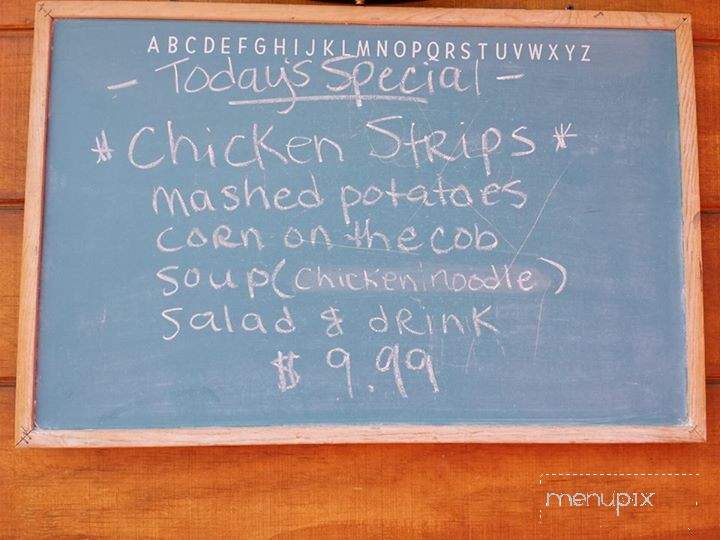 ABCDEFGHIJKLMNOPQRSTUVWXYZ
- Today's Special -
* Chicken Strips *
mashed potatoes
corn on the cob
soup (chicken noodle)
salad & drink
$ 9.99
menupix